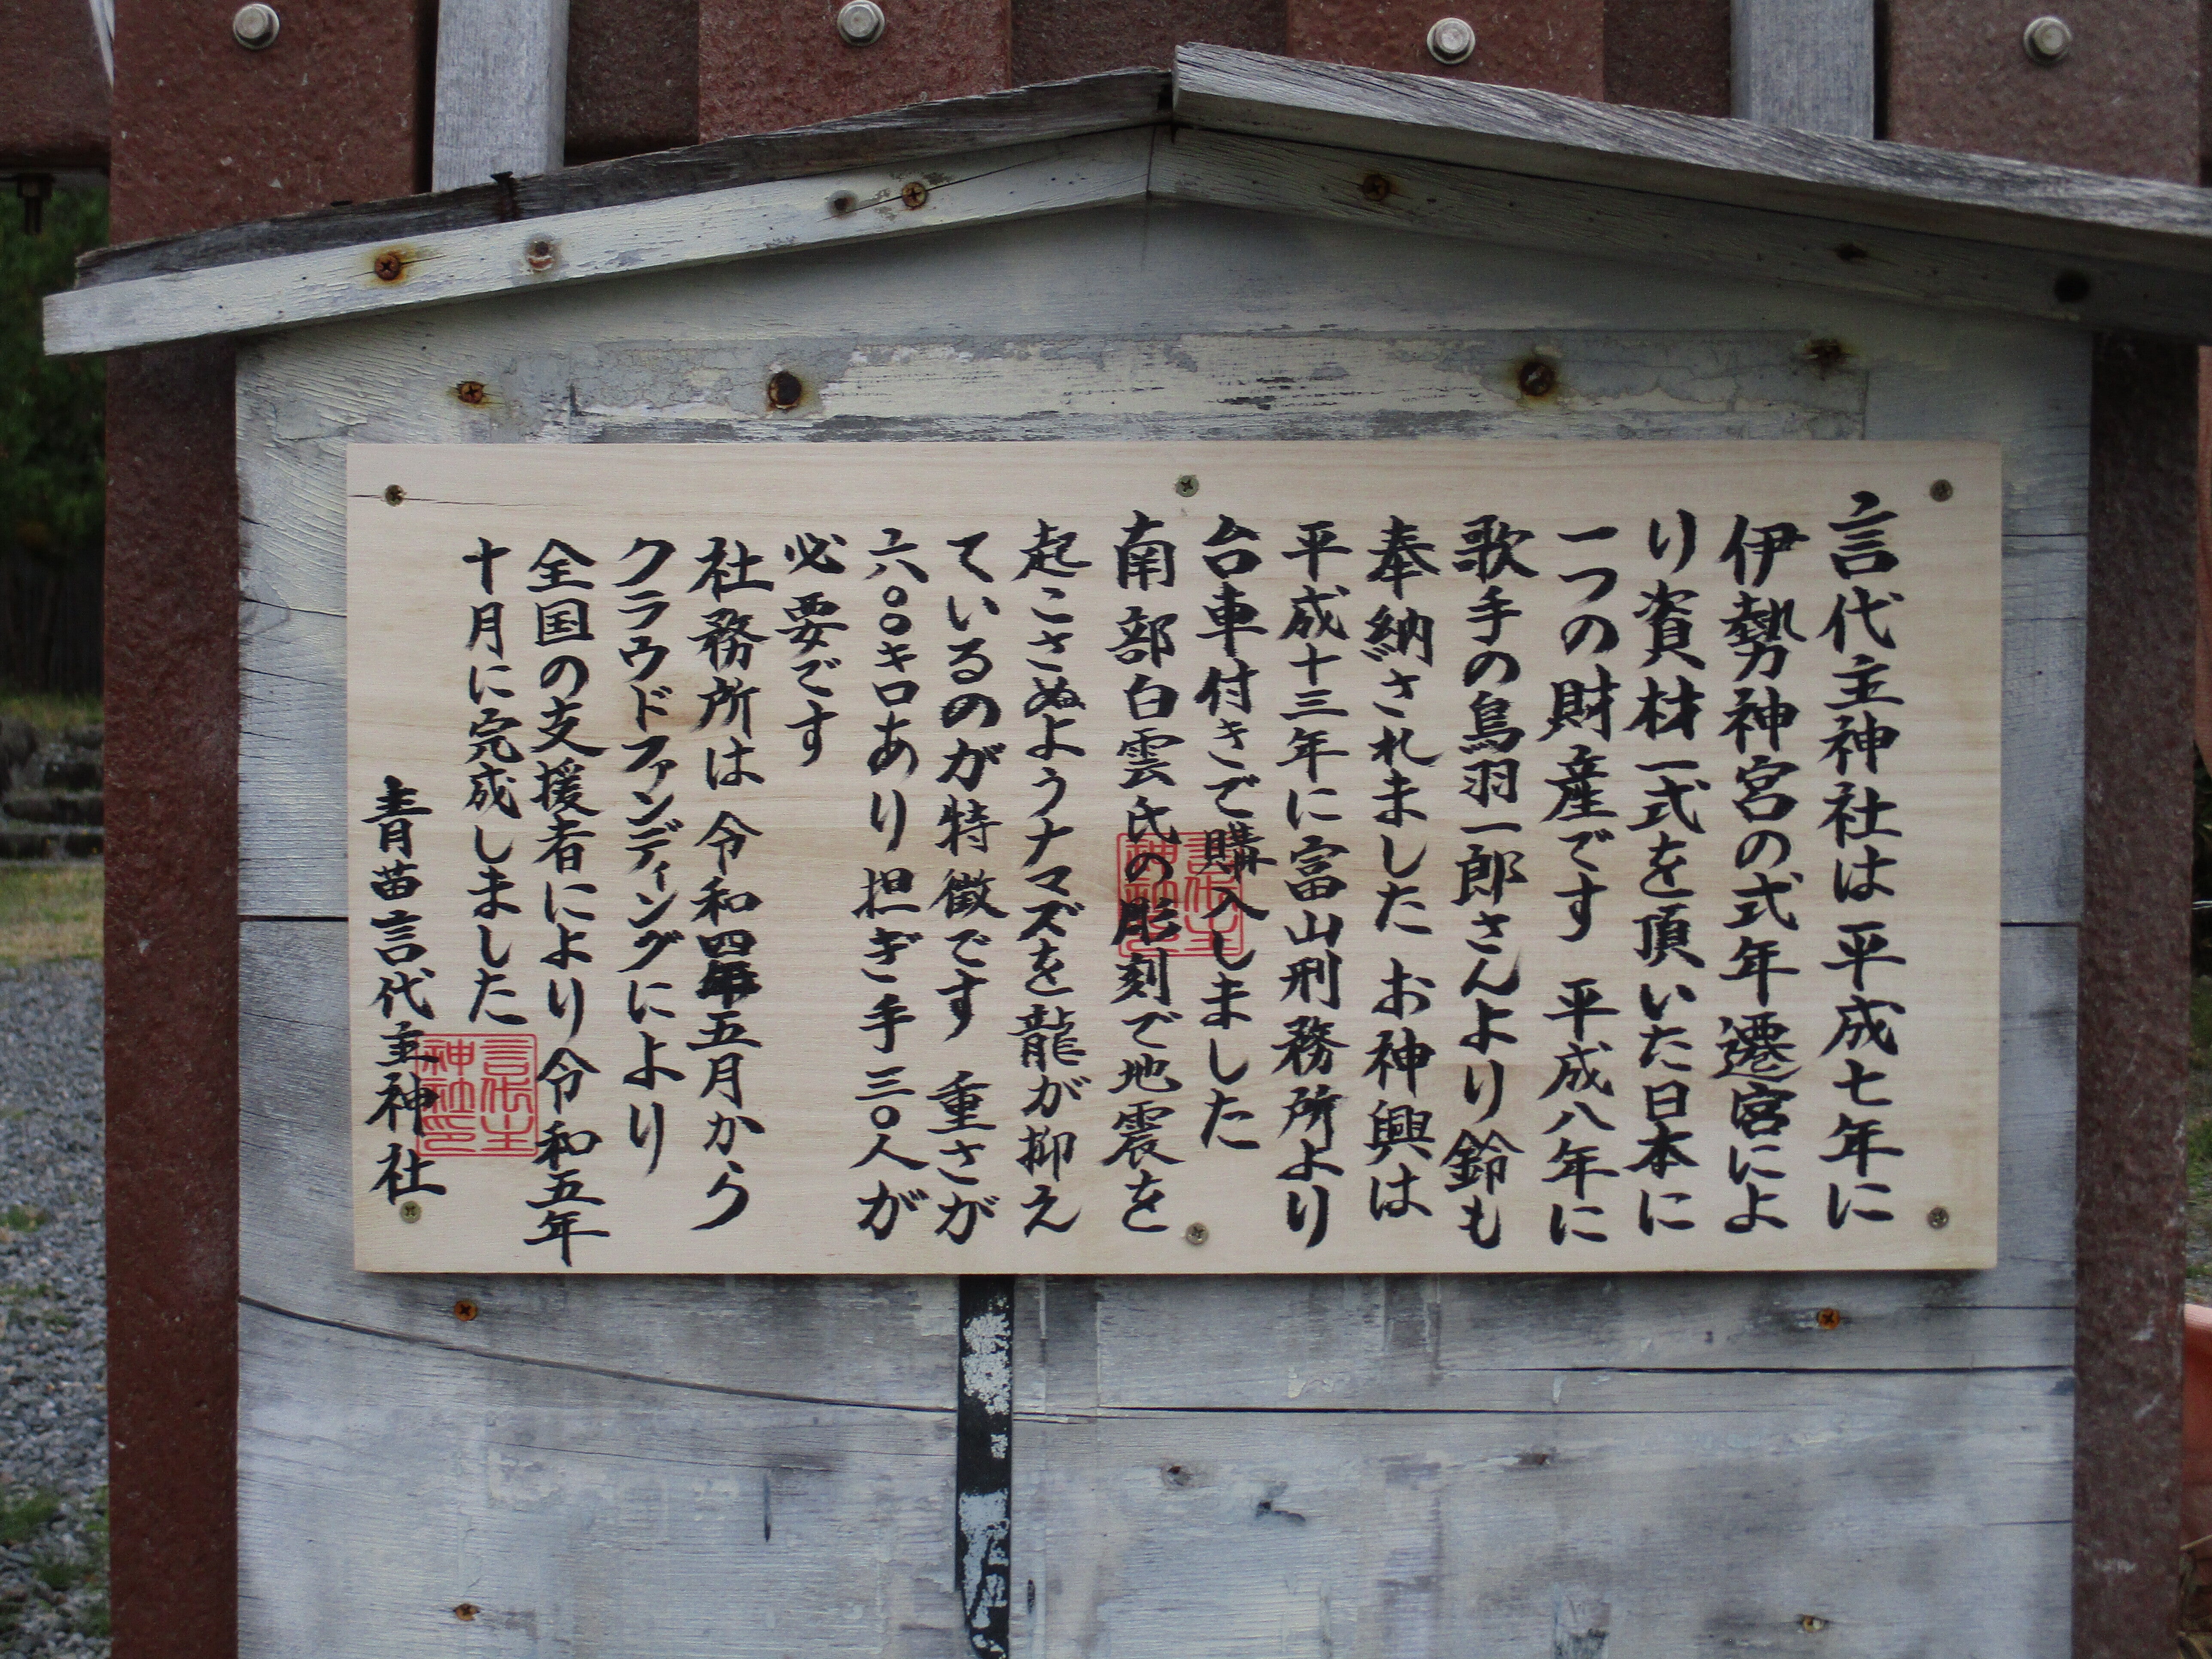 言代主神社は平成七年に
伊勢神宮の式年遷宮によ
り資材一式を頂いた日本に
一つの財産です 平成八年に
歌手の鳥羽一郎さんより鈴も
奉納されました お神輿は
平成十三年に富山刑務所より
台車付きで購入しました
南部白雲氏の彫刻で地震を
起こさぬようナマズを龍が抑え
ているのが特徴です 重さが
六〇〇キロあり担ぎ手三〇人が
必要です
社務所は令和四年五月から
クラウドファンディングにより
全国の支援者により令和五年
十月に完成しました
青苗言代主神社
言代主
神社印